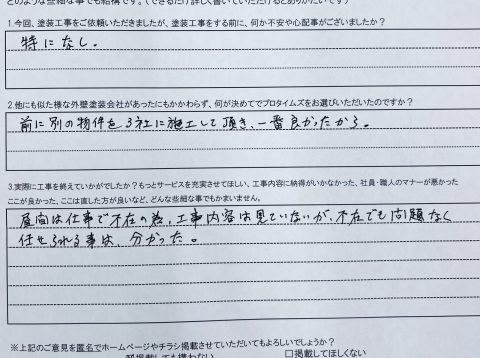 どのような些細な事でも結構です。（できるだけ詳しく書いていただけるとありがたいです）
1.今回、塗装工事をご依頼いただきましたが、塗装工事をする前に、何か不安や心配事がございましたか？
特になし。
2.他にも似た様な外壁塗装会社があったにもかかわらず、何が決めてでプロタイムズをお選びいただいたのですか？
前に別の物件を3社に施工して頂き、一番良かったから。
3.実際に工事を終えていかがでしたか？もっとサービスを充実させてほしい、工事内容に納得がいかなかった、社員・職人のマナーが悪かった
ここが良かった、ここは直した方が良いなど、どんな些細な事でもかまいません。
昼間は仕事で不在の為、工事内容は見ていないが、不在でも問題なく
任せられる事は、分かった。
※上記のご意見を匿名でホームページやチラシ掲載させていただいてもよろしいでしょうか？
掲載しても構わない　□掲載してほしくない